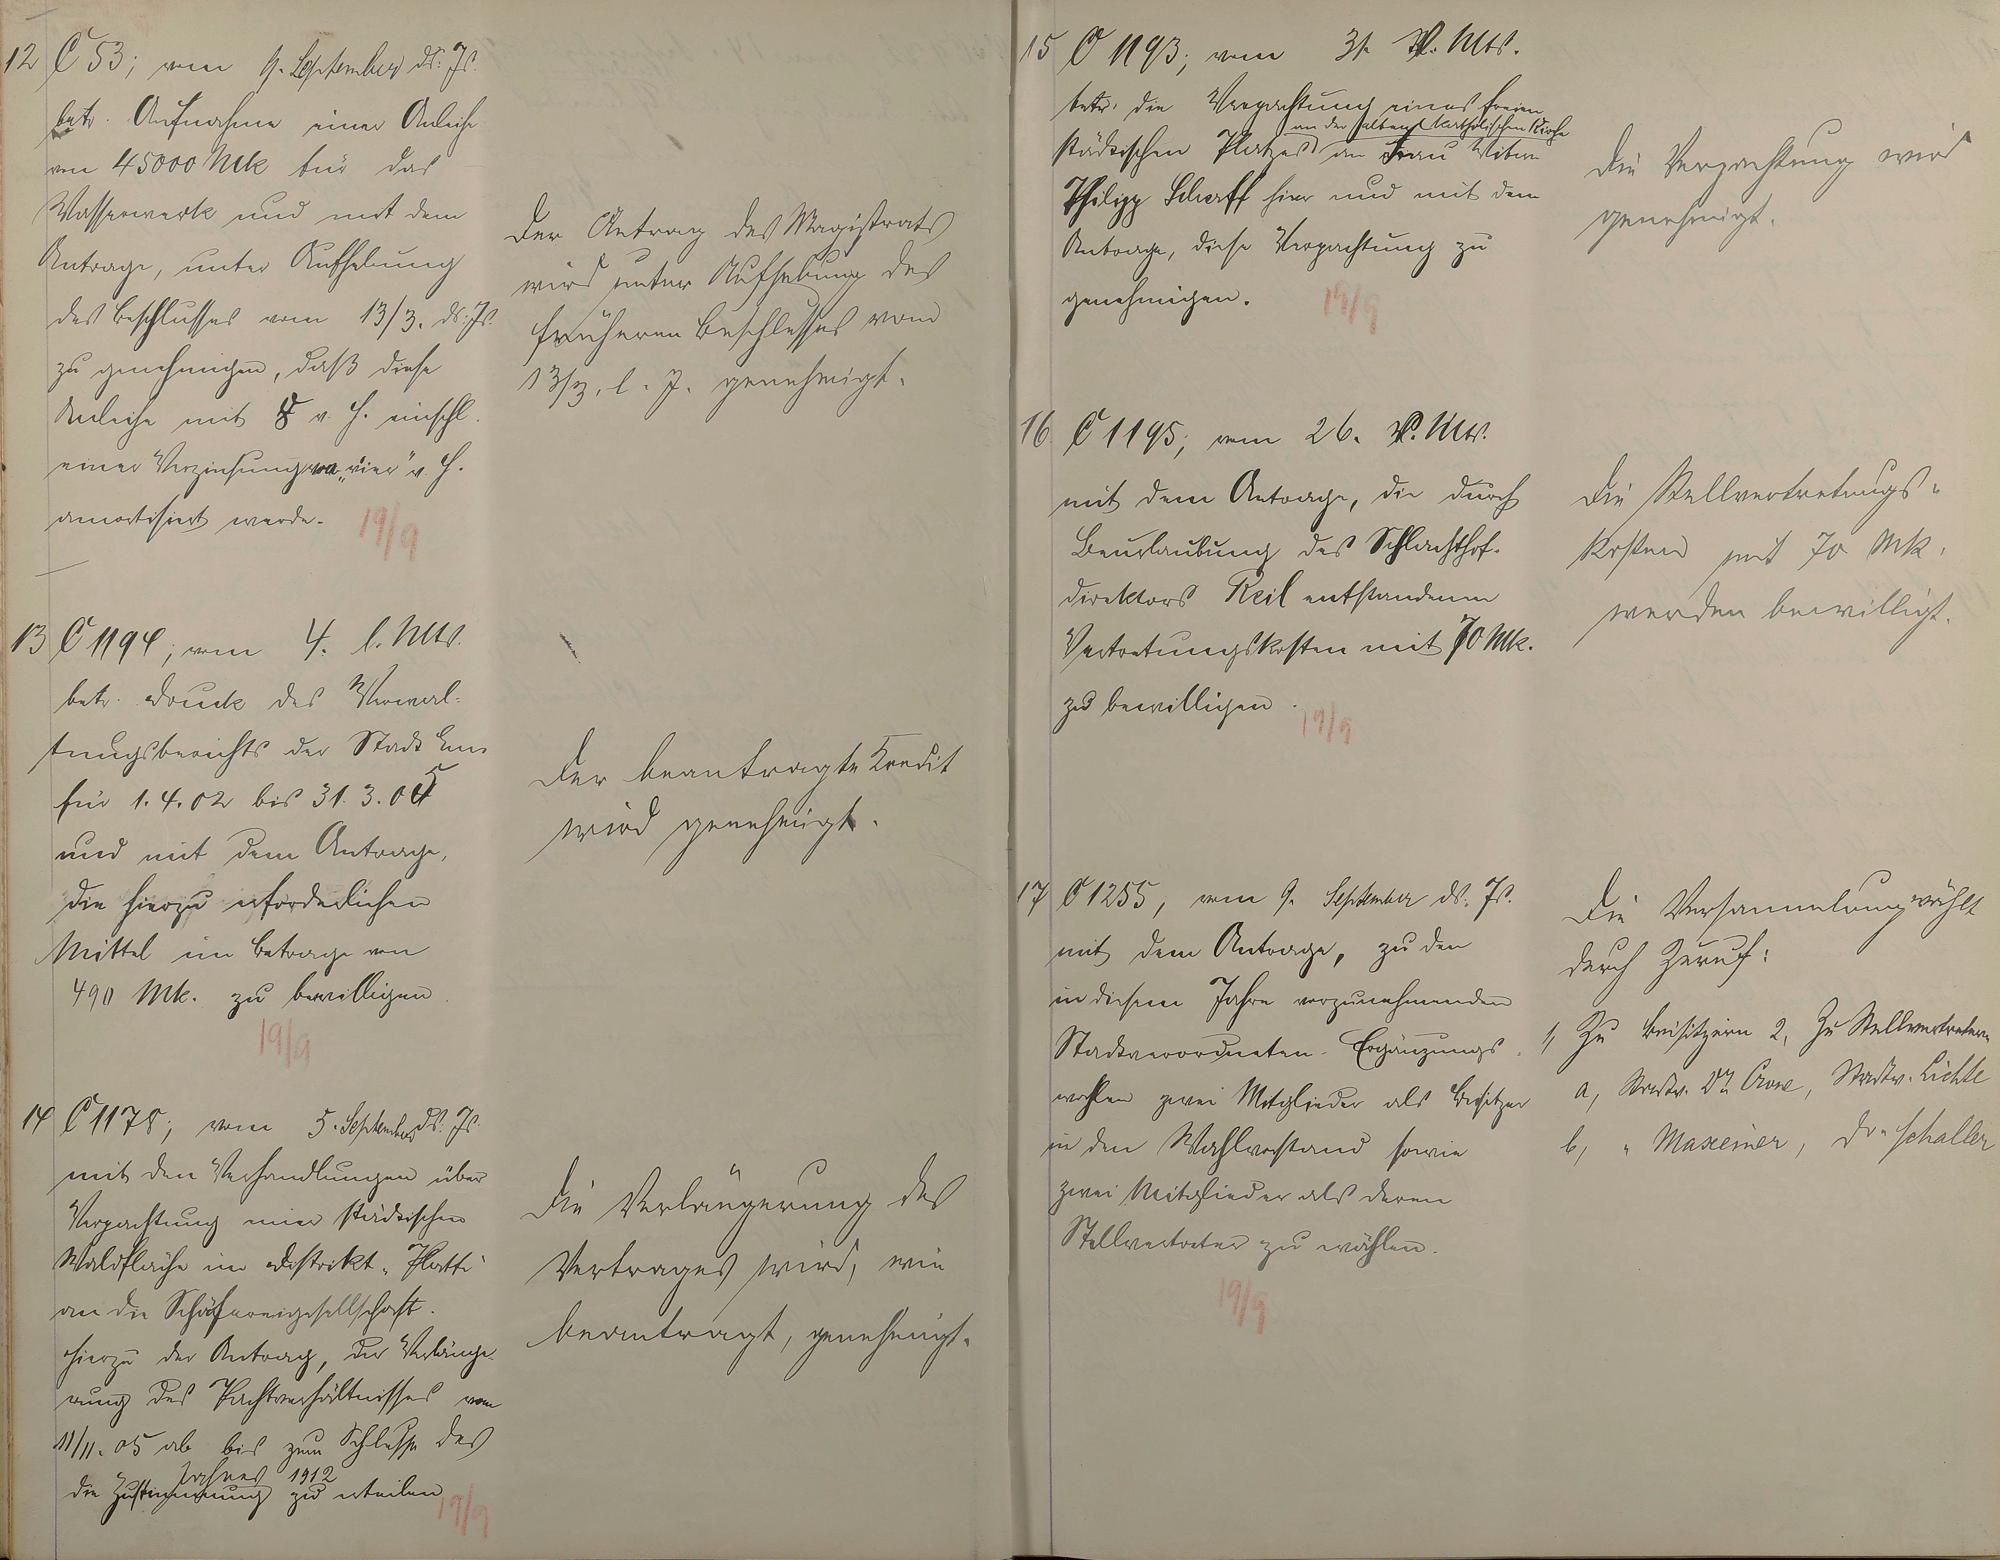 12 C 53; vom 9. September ds. Js.
betr. Aufnahme einer Anleihe
von 45000 Mk für das
Wasserwerk und mit dem
Antrage, unter Aufhebung
des Beschlusses vom 13/3. ds. Js.
zu genehmigen, daß diese
Anleihe mit v. H. einschl.
einer Verzinsung von „vier“ v. H.
amortisiert werde.
19/9
Der Antrag des Magistrats
wird unter Aufhebung des
früheren Beschlusses vom
13/3. l. J. genehmigt.
13 C 1194; vom 4. l. Mts.
betr. Druck des Verwal-
tungsberichts der Stadt Ems
für 1.4.02 bis 31.3.05
und mit dem Antrage,
die hierzu erforderlichen
Mittel im Betrage von
490 Mk. zu bewilligen.
19/9
Der beantragte Kredit
wird genehmigt.
14 C 1178; vom 5. September ds. Js.
mit den Verhandlungen über
Verpachtung einer städtischen
Waldfläche im Distrikt „Platte“
an die Schäfereigesellschaft.
Hierzu der Antrag, der Verlänge-
rung des Pachtverhältnisses vom
11/11. 05 ab bis zum Schlusse des
Jahres 1912
die Zustimmung zu erteilen
19/9
Die Verlängerung des
Vertrages wird, wie
beantragt, genehmigt.
15 C 1193; vom 31. v. Mts.
betr. die Verpachtung eines freien
an der alten katholischen Kirche
städtischen Platzes an Frau Witwe
Philipp Scharff hier und mit dem
Antrage, diese Verpachtung zu
genehmigen.
19/9
Die Verpachtung wird
genehmigt.
16. C 1195; vom 26. v. Mts.
mit dem Antrage, die durch
Beurlaubung des Schlachthof-
direktors Keil entstandenen
Vertretungskosten mit 70 Mk.
zu bewilligen.
19/9
Die Stellvertretungs-
kosten mit 70 Mk.
werden bewilligt.
17 C 1255, vom 9. September ds. Js.
mit dem Antrage, zu den
in diesem Jahre vorzunehmenden
Stadtverordneten-Ergänzungs-
wahlen zwei Mitglieder als Beisitzer
in den Wahlvorstand sowie
zwei Mitglieder als deren
Stellvertreter zu wählen.
19/9
Die Versammlung wählt
durch Zuruf:
1, Zu Beisitzern 2, Zu Stellvertretern
a, Stadtv. Dr. Stadtv. Lichte
b, „ Maxeiner, Dr. Schaller